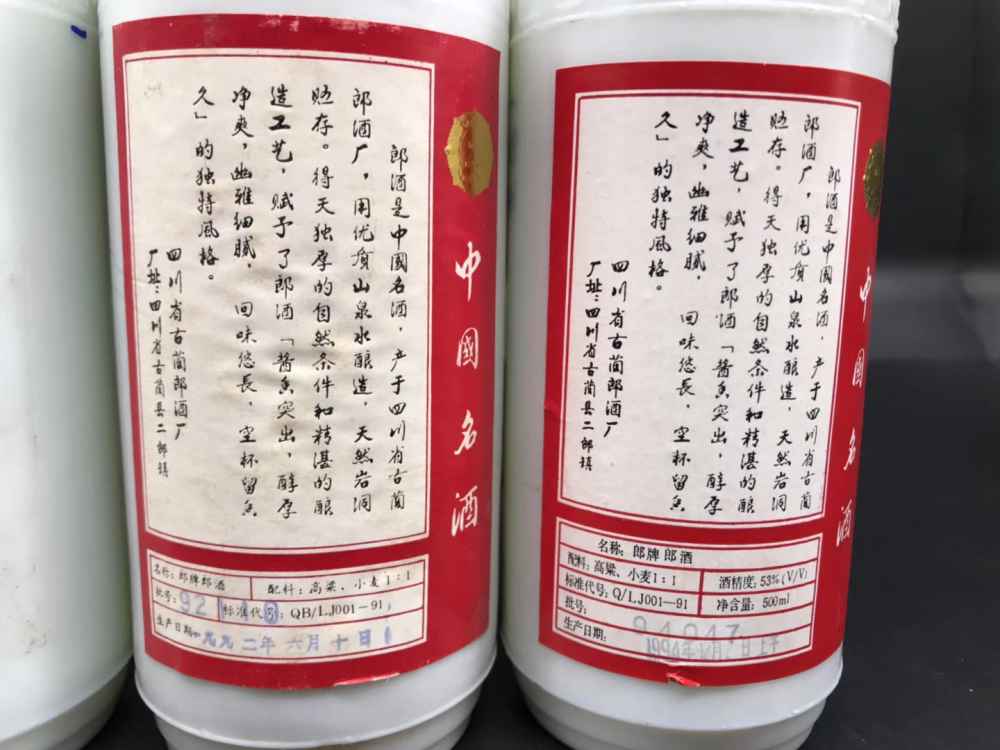 郎酒是中國名酒，产于四川省古蔺
郎酒厂，用优质山泉水酿造，天然岩洞
贮存。得天独厚的自然条件和精湛的酿
造工艺，赋予了郎酒「酱香突出，醇厚
净爽，幽雅细腻，回味悠長，空杯留香
久」的独特風格。
四川省古蔺郎酒厂
厂址：四川省古蔺县二郎镇
中國名酒
名称：郎牌郎酒
配料：高粱、小麦1：1
批号：92
标准代号：QB/LJ001-91
生产日期：一九九二年六月十日
郎酒是中國名酒，产于四川省古蔺
郎酒厂，用优质山泉水酿造，天然岩洞
贮存。得天独厚的自然条件和精湛的酿
造工艺，赋予了郎酒「酱香突出，醇厚
净爽，幽雅细腻，回味悠長，空杯留香
久」的独特風格。
四川省古蔺郎酒厂
厂址：四川省古蔺县二郎镇
中國名酒
名称：郎牌郎酒
配料：高粱、小麦1：1
酒精度：53%(V/V)
标准代号：Q/LJ001—91
净含量：500ml
批号：
生产日期：